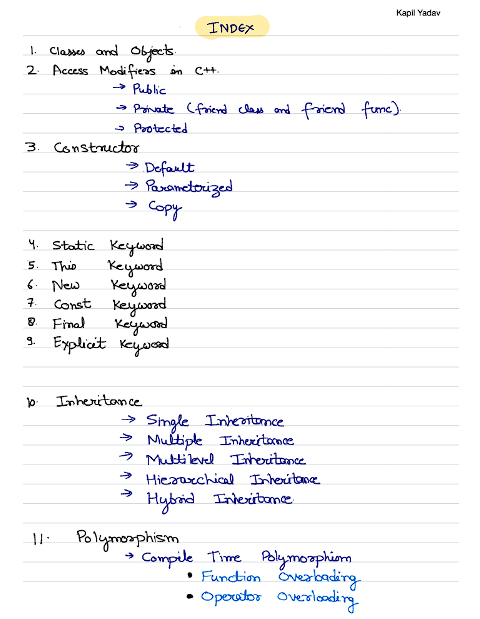 Kapil Yadav
INDEX
1. Classes and Objects.
2. Access Modifiers in C++.
→ Public
→ Private (friend class and friend func).
→ Protected
3. Constructor
→ Default
→ Parametorized
→ Copy
4. Static Keyword
5. This Keyword
6. New Keyword
7. Const Keyword
8. Final Keyword
9. Explicit Keyword
10. Inheritance
→ Single Inheritance
→ Multiple Inheritance
→ Multilevel Inheritance
→ Hierarchical Inheritance
→ Hybrid Inheritance
11. Polymorphism
→ Compile Time Polymorphism
• Function Overloading
• Operator Overloading